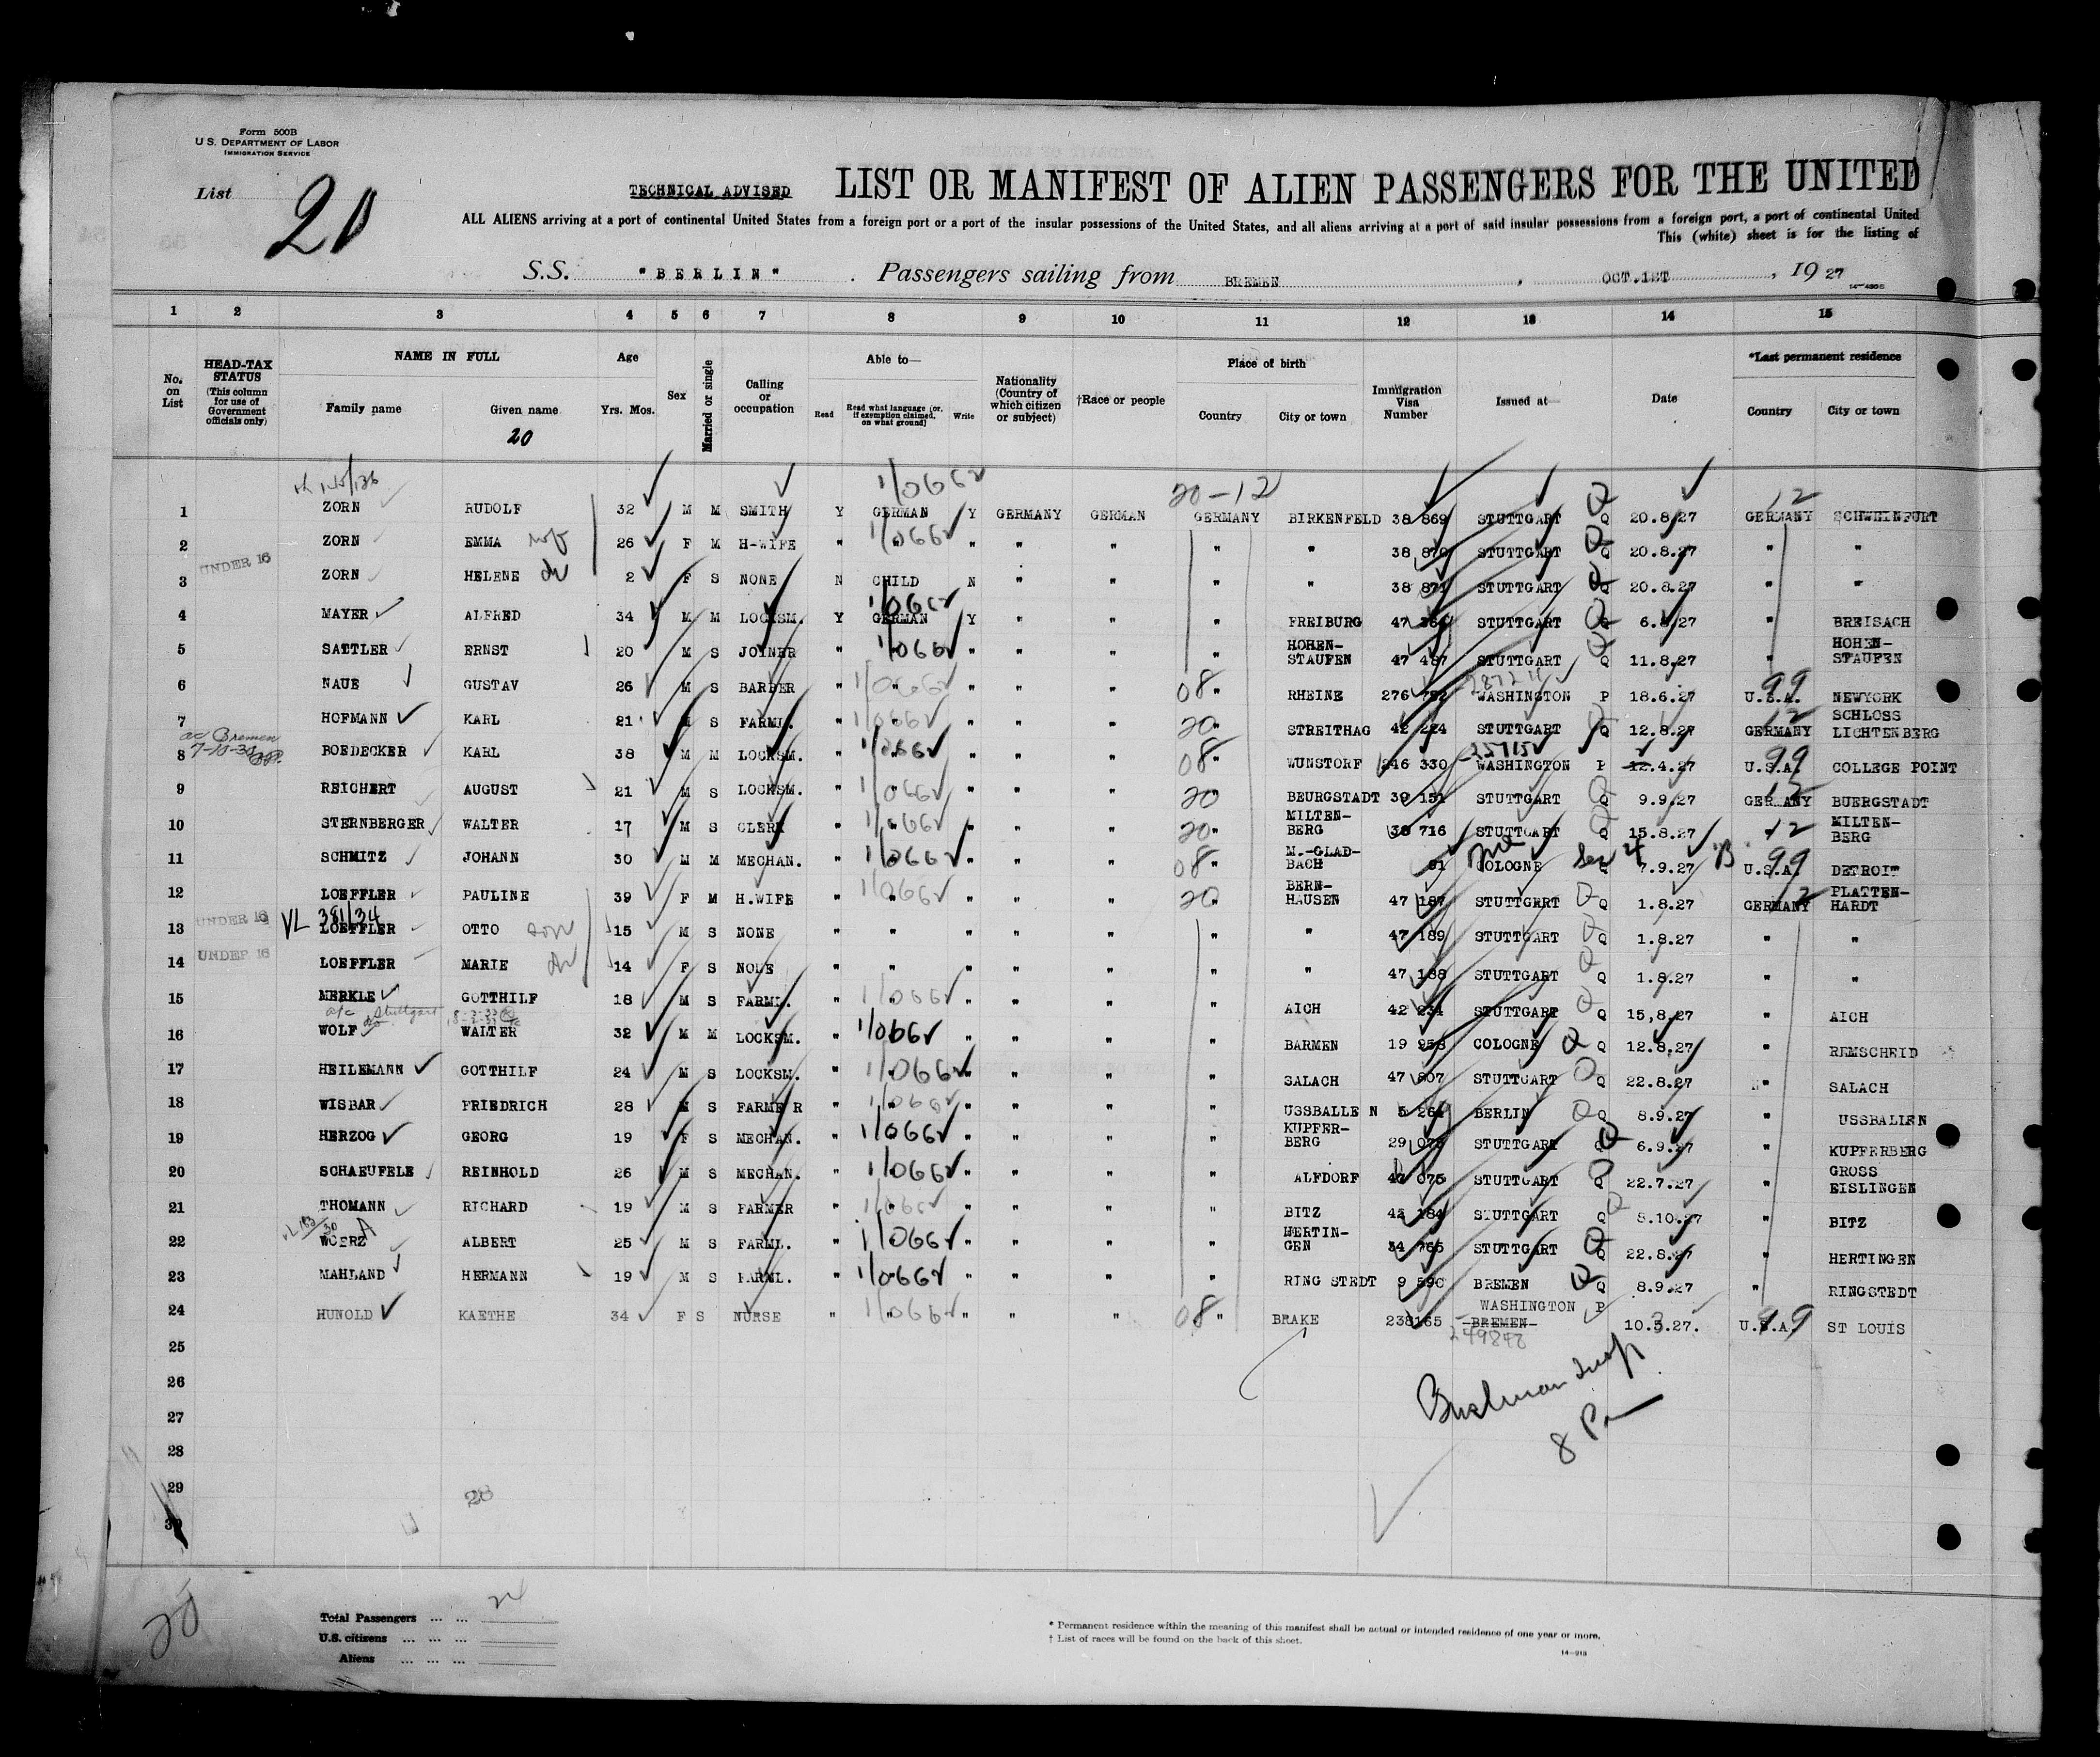 Form 500B
U.S. DEPARTMENT OF LABOR
IMMIGRATION SERVICE
List 20
TECHNICAL ADVISED
LIST OR MANIFEST OF ALIEN PASSENGERS FOR THE UNITED
ALL ALIENS arriving at a port of continental United States from a foreign port or a port of the insular possessions of the United States, and all aliens arriving at a port of said insular possessions from a foreign port, a port of continental United
This (white) sheet is for the listing of
S.S. "BERLIN" . Passengers sailing from BREMEN , OCT.1ST , 19 27
1 2 3 4 5 6 7 8 9 10 11 12 13 14 15
No. on List
HEAD-TAX STATUS (This column for use of Government officials only)
NAME IN FULL
Family name Given name
20
Age
Yrs. Mos.
Sex
Married or single
Calling or occupation
Able to—
Read Read what language (or, if exemption claimed, on what ground) Write
Nationality (Country of which citizen or subject)
†Race or people
Place of birth
Country City or town
Immigration Visa Number
Issued at—
Date
*Last permanent residence
Country City or town
1/066 20-12 12
1 ZORN RUDOLF 32 M M SMITH Y GERMAN Y GERMANY GERMAN GERMANY BIRKENFELD 38 869 STUTTGART Q 20.8.27 GERMANY SCHWEINFURT
2 ZORN EMMA wife 26 F M H-WIFE " " " " " " " 38 870 STUTTGART Q 20.8.27 " "
UNDER 16
3 ZORN HELENE 2 F S NONE N CHILD N " " " " 38 871 STUTTGART Q 20.8.27 " "
4 MAYER ALFRED 34 M M LOCKSM. Y GERMAN Y " " " FREIBURG 47 STUTTGART Q 6.8.27 " BREISACH
5 SATTLER ERNST 20 M S JOINER " 1/066 " " " " HOHEN-STAUFEN 47 487 STUTTGART Q 11.8.27 " HOHEN-STAUFEN
6 NAUE GUSTAV 26 M S BARBER " 1/066 " " " 08 " RHEINE 276 752 WASHINGTON P 18.6.27 U.S.A. 99 NEWYORK
7 HOFMANN KARL 21 M S FARML. " 1/066 " " " 20 " STREITHAG 42 224 STUTTGART Q 12.8.27 GERMANY 12 SCHLOSS LICHTENBERG
ac Bremen
7-10-30
8 BOEDECKER KARL 38 M M LOCKSM. " 1/066 " " " 08 " WUNSTORF 246 330 WASHINGTON P 12.4.27 U.S.A. 99 COLLEGE POINT
9 REICHERT AUGUST 21 M S LOCKSM. " 1/066 " " " 20 " BEURGSTADT 39 151 STUTTGART Q 9.9.27 GERMANY 12 BUERGSTADT
10 STERNBERGER WALTER 17 M S CLERK " 1/066 " " " 20 " MILTEN-BERG 38 716 STUTTGART Q 15.8.27 " 12 MILTEN-BERG
11 SCHMITZ JOHANN 30 M M MECHAN. " 1/066 " " " 08 " M.-GLAD-BACH 91 COLOGNE Sec 4 7.9.27 U.S.A. 99 DETROIT
12 LOEFFLER PAULINE 39 F M H.WIFE " 1/066 " " " 20 " BERN-HAUSEN 47 187 STUTTGART Q 1.8.27 GERMANY 12 PLATTEN-HARDT
UNDER 16 VL 381/34
13 LOEFFLER OTTO son 15 M S NONE " " " " " " " 47 189 STUTTGART Q 1.8.27 " "
UNDER 16
14 LOEFFLER MARIE 14 F S NONE " " " " " " " 47 188 STUTTGART Q 1.8.27 " "
15 MERKLE GOTTHILF 18 M S FARML. " 1/066 " " " " AICH 42 231 STUTTGART Q 15,8.27 " AICH
Stuttgart
16 WOLF WALTER 32 M M LOCKSM. " 1/066 " " " " BARMEN 19 958 COLOGNE Q 12.8.27 " REMSCHEID
17 HEILEMANN GOTTHILF 24 M S LOCKSM. " 1/066 " " " " SALACH 47 807 STUTTGART Q 22.8.27 " SALACH
18 WISBAR FRIEDRICH 28 M S FARMER " 1/066 " " " " USSBALLE N 5 264 BERLIN Q 8.9.27 " USSBALLEN
19 HERZOG GEORG 19 F S MECHAN. " 1/066 " " " " KUPFER-BERG 29 078 STUTTGART Q 6.9.27 " KUPFERBERG
20 SCHAEUFELE REINHOLD 26 M S MECHAN. " 1/066 " " " " ALFDORF 47 075 STUTTGART Q 22.7.27 " GROSS EISLINGEN
21 THOMANN RICHARD 19 M S FARMER " 1/066 " " " " BITZ 42 184 STUTTGART Q 8.10.27 " BITZ
22 WOERZ ALBERT 25 M S FARML. " 1/066 " " " " HERTIN-GEN 34 765 STUTTGART Q 22.8.27 " HERTINGEN
23 MAHLAND HERMANN 19 M S FARML. " 1/066 " " " " RING STEDT 9 590 BREMEN Q 8.9.27 " RINGSTEDT
24 HUNOLD KAETHE 34 F S NURSE " 1/066 " " " 08 " BRAKE 238165 WASHINGTON P BREMEN 10.3.27. U.S.A. 99 ST LOUIS
249848
25
26
27
28
29
30
8 Pm
20
Total Passengers ... ... 24
U.S. citizens ... ... ...
Aliens ... ... ...
* Permanent residence within the meaning of this manifest shall be actual or intended residence of one year or more.
† List of races will be found on the back of this sheet.
14—913